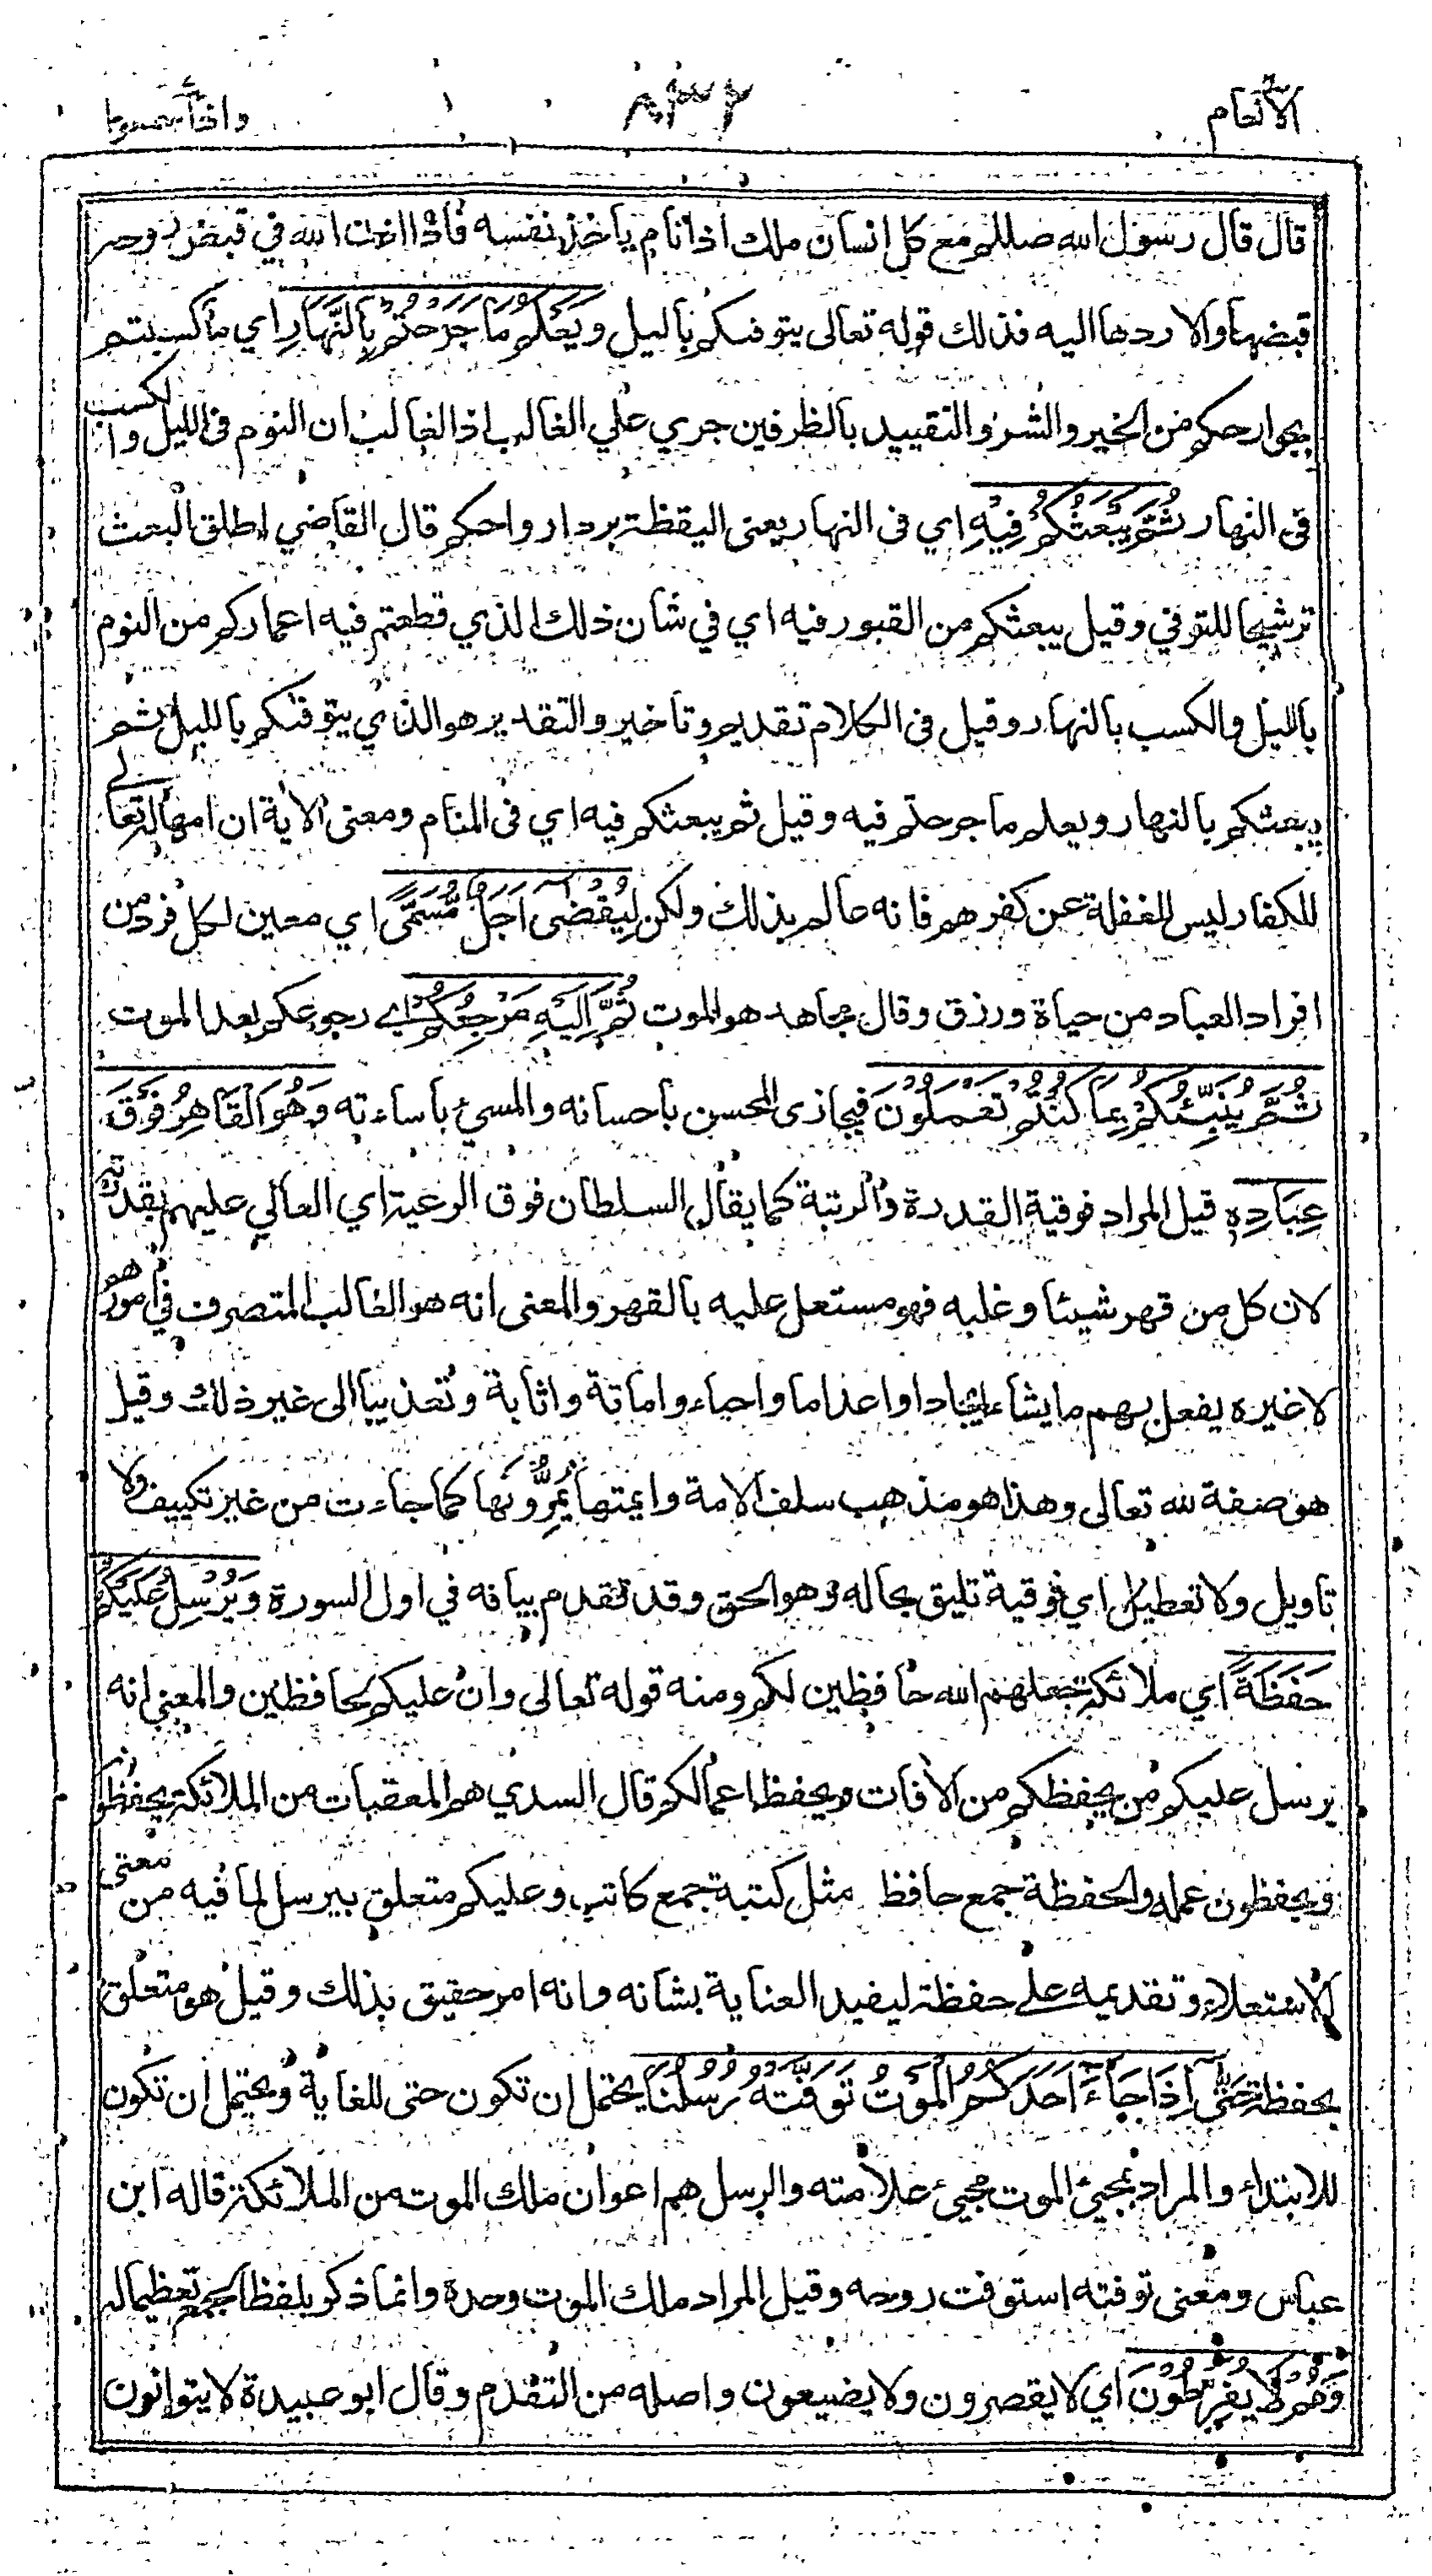 الانعام ٨٣٢ واذا سمعوا
قال قال رسول الله صللم مع كل انسان ملك اذا نام ياخذ نفسه فاذا اذن الله في قبض روحه
قبضها والا ردها اليه فذلك قوله تعالى يتوفىكم بالليل وَيَعْلَمُ مَا جَرَحْتُمْ بِالنَّهَارِ اي ما كسبتم
بجوارحكم من الخير والشر والتقييد بالظرفين جري علي الغالب اذ الغالب ان النوم في الليل والكسب
في النهار ثُمَّ يَبْعَثُكُمْ فِيْهِ اي في النهار يعني اليقظة برد ارواحكم قال القاضي اطلق البعث
ترشيحا للتوفي وقيل يبعثكم من القبور فيه اي في شان ذلك الذي قطعتم فيه اعماركم من النوم
بالليل والكسب بالنهار وقيل في الكلام تقديم وتاخير والتقدير هو الذي يتوفىكم بالليل ثم
يبعثكم بالنهار ويعلم ما جرحتم فيه وقيل ثم يبعثكم فيه اي في المنام ومعنى الاية ان امهاله تعالى
للكفار ليس للغفلة عن كفرهم فانه عالم بذلك ولكن لِيُقْضٰى اَجَلٌ مُّسَمًّى اي معين لكل فرد من
افراد العباد من حياة ورزق وقال مجاهد هو الموت ثُمَّ اِلَيْهِ مَرْجِعُكُمْ اي رجوعكم بعد الموت
ثُمَّ يُنَبِّئُكُمْ بِمَا كُنْتُمْ تَعْمَلُوْنَ فيجازى المحسن باحسانه والمسيء باساءته وَهُوَ الْقَاهِرُ فَوْقَ
عِبَادِهٖ قيل المراد فوقية القدرة والرتبة كما يقال السلطان فوق الرعية اي العالي عليهم بقدرته
لان كل من قهر شيئا وغلبه فهو مستعل عليه بالقهر والمعنى انه هو الغالب المتصرف في امورهم
لا غيره يفعل بهم ما يشاء ايجادا واعداما واحياء واماتة واثابة وتعذيبا الى غير ذلك وقيل
هو صفة لله تعالى وهذا هو مذهب سلف الامة وايمتها يُمِرُّونَها كما جاءت من غير تكييف ولا
تاويل ولا تعطيل اي فوقية تليق بحاله وهو الحق وقد تقدم بيانه في اول السورة وَيُرْسِلُ عَلَيْكُمْ
حَفَظَةً اي ملائكة جعلهم الله حافظين لكم ومنه قوله تعالى وان عليكم لحافظين والمعنى انه
يرسل عليكم من يحفظكم من الأفات ويحفظ اعمالكم قال السدي هم المعقبات من الملائكة يحفظونه
ويحفظون عمله والحفظة جمع حافظ مثل كتبة جمع كاتب وعليكم متعلق بيرسل لما فيه من معنى
الاستعلاء وتقديمه على حفظة ليفيد العناية بشانه وانه امر حقيق بذلك وقيل هو متعلق
بحفظة حَتّٰى اِذَا جَاءَ اَحَدَكُمُ الْمَوْتُ تَوَفَّتْهُ رُسُلُنَا يحتمل ان تكون حتى للغاية ويحتمل ان تكون
للابتداء والمراد بمجيئ الموت مجيئ علامته والرسل هم اعوان ملك الموت من الملائكة قاله ابن
عباس ومعنى توفته استوفت روحه وقيل المراد ملك الموت وحدة وانما ذكر بلفظ الجمع تعظيما له
وَهُمْ لَا يُفَرِّطُوْنَ اي لا يقصرون ولا يضيعون واصله من التقدم وقال ابو عبيدة لا يتوانون